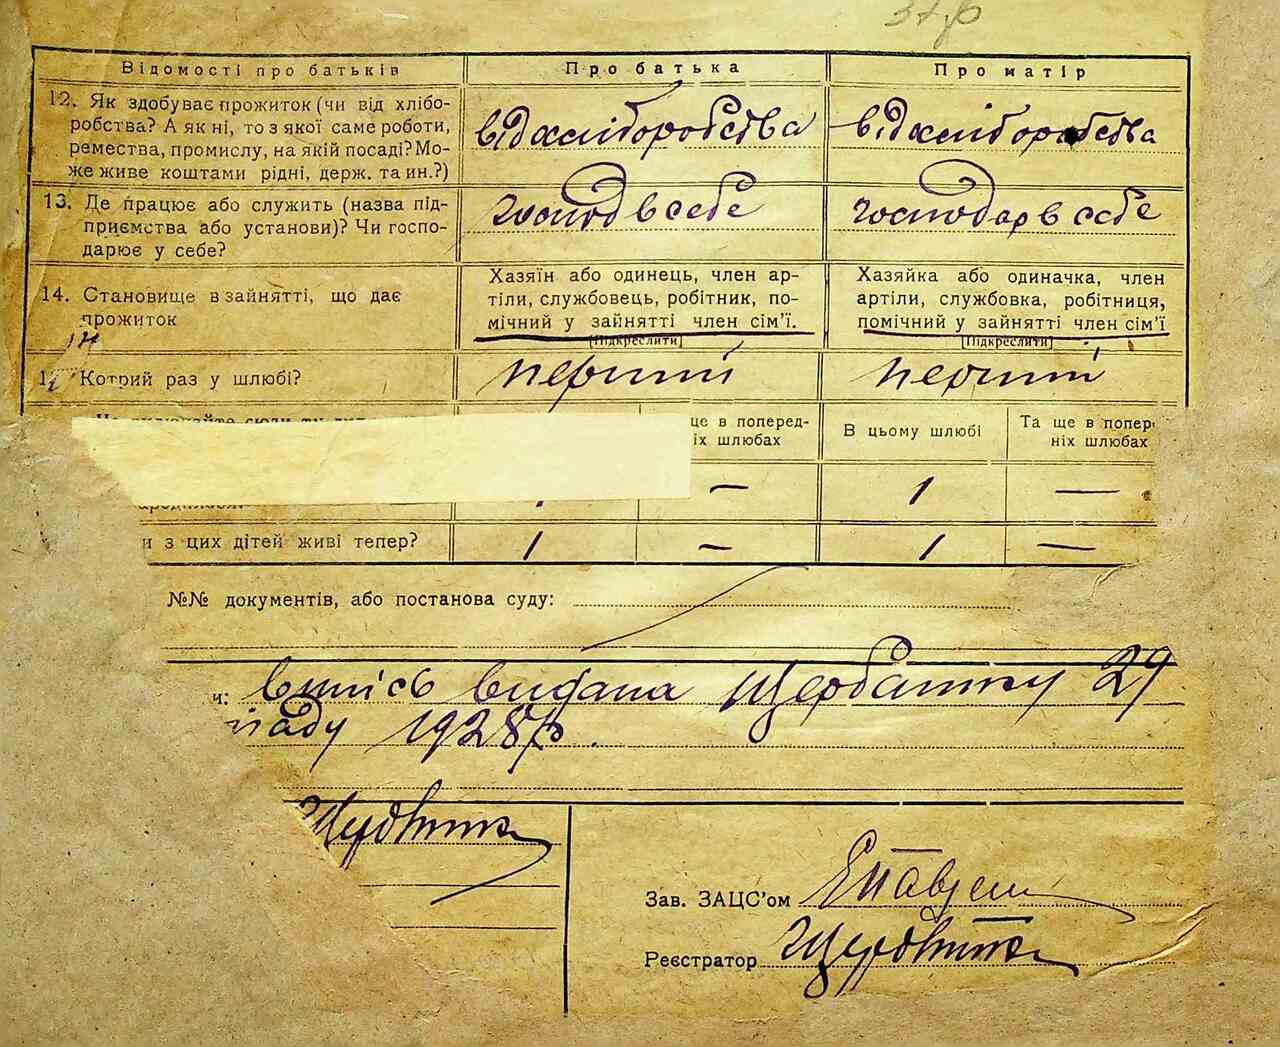 Відомості про батьків
Про батька
Про матір
12. Як здобуває прожиток (чи від хлібо-
робства? А як ні, то з якої саме роботи,
ремества, промислу, на якій посаді? Мо-
же живе коштами рідні, держ. та ин.?)
від хліборобства
від хліборобства
13. Де працює або служить (назва під-
приємства або установи)? Чи госпо-
дарює у себе?
господ в себе
господар в себе
14. Становище в зайнятті, що дає
прожиток
Хазяїн або одинець, член ар-
тіли, службовець, робітник, по-
мічний у зайнятті член сім'ї.
[Підкреслити]
Хазяйка або одиначка, член
артіли, службовка, робітниця,
помічний у зайнятті член сім'ї
[Підкреслити]
Котрий раз у шлюбі?
перший
перший
ще в поперед-
іх шлюбах
В цьому шлюбі
Та ще в попер
ніх шлюбах
— 1 —
и з цих дітей живі тепер?
1 — 1 —
№№ документів, або постанова суду:
и: випісь видана Щербатюку 29
паду 1928р.
Зав. ЗАЦС'ом
Реєстратор